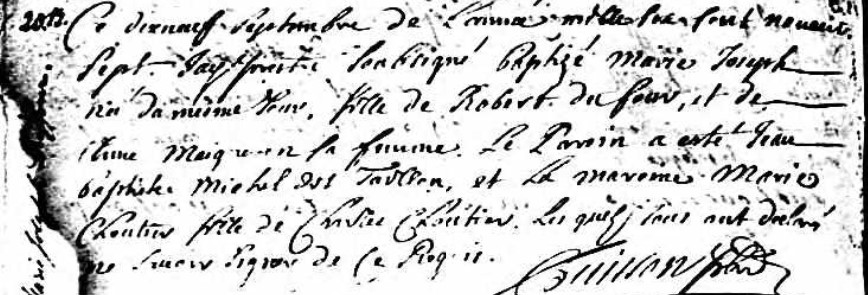 Ce dixneuf septembre de l'année mille six cent nonente
sept Jay prestre soubsigné baptizé Marie Joseph
né du mesme Jour, fille de Robert du four, et de
Anne Maigre en sa femme. Le Parain a esté Jean
baptiste Michel dit Taillon, et la maraine Marie
Cloutier fille de Charles Cloutier. Les quels tous ont déclaré
ne scavoir signer de ce Requis.